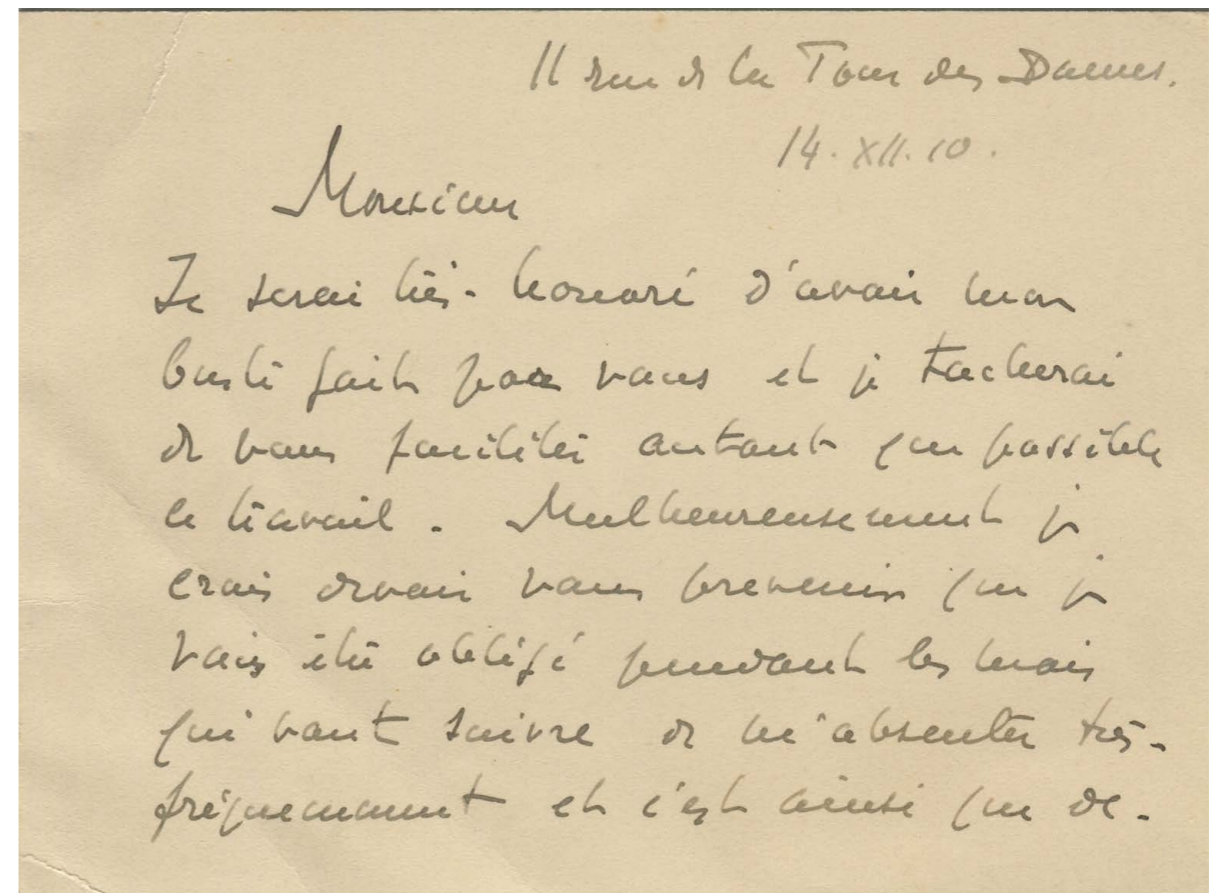 11 rue de la Tour des Dames.
14. XII. 10.
Monsieur
Je serai très-honoré d'avoir mon
buste fait par vous et je tacherai
de vous faciliter autant que possible
le travail. Malheureusement je
crois devoir vous prevenir que je
vais être obligé pendant les mois
qui vont suivre de m'absenter très-
fréquemment et c'est ainsi que de-